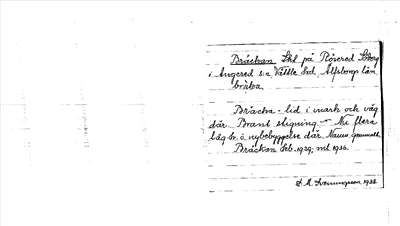 Bräckan Lhl på Röszered Skog
i Angered s:n Vättle hd, Älfsborgs län
bräka.
Bräcka - lid i mark och väg
där Brant stigning - Nu flera
läg. o. nybebyggelse där. Namn gammalt
Bräckan Lhl. 1929, ml 1936.
A. M. 1938.